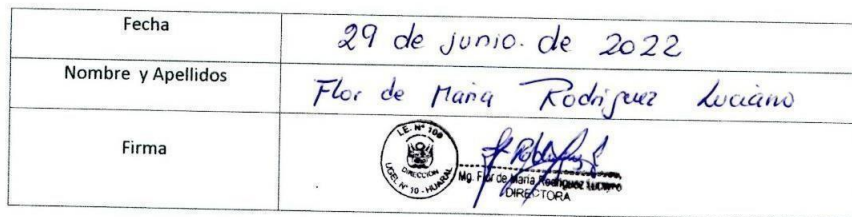 Fecha
29 de junio. de 2022
Nombre y Apellidos
Flor de Maria Rodriguez Luciano
Firma
I.E. N° 108
DIRECCION
UGEL N° 10 - HUARAL
Mg. Flor de Maria Rodriguez Luciano
DIRECTORA